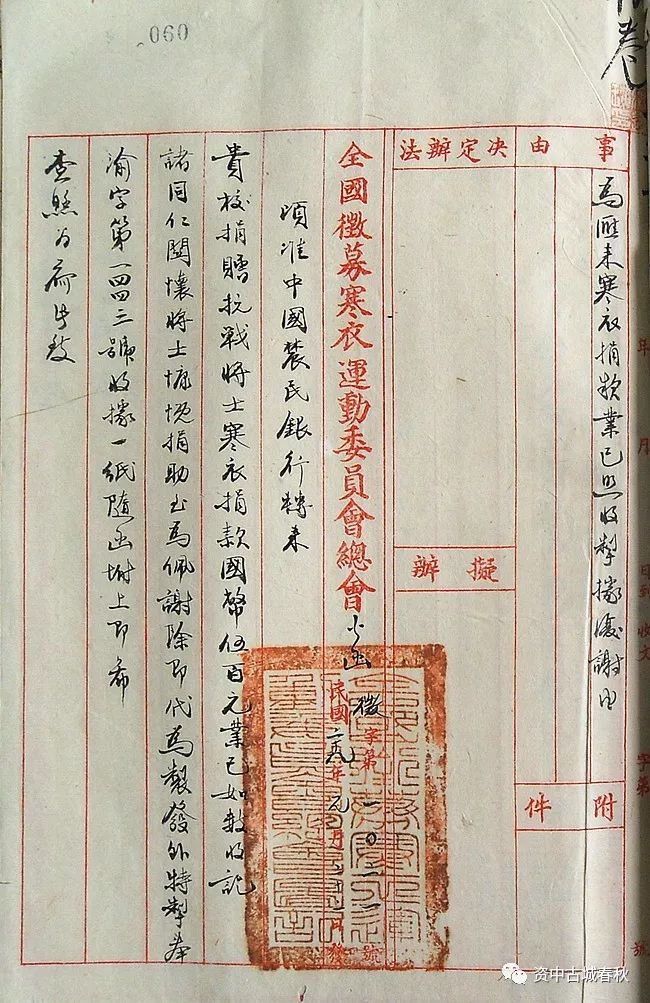 060
卷
事由
為匯來寒衣捐款業已照收掣據復謝由
附件
決定辦法
擬辦
全國徵募寒衣運動委員會總會公函
徵字第一〇一一號
民國二九年元月
頃准中國農民銀行轉來
貴校捐贈抗戰將士寒衣捐款國幣伍百元業已如數收訖
諸同仁關懷將士慷慨捐助至為佩謝除即代為製發外特掣奉
渝字第一四四三號收據一紙隨函坿上即希
查照為荷此致
年月日到收文字第號
资中古城春秋